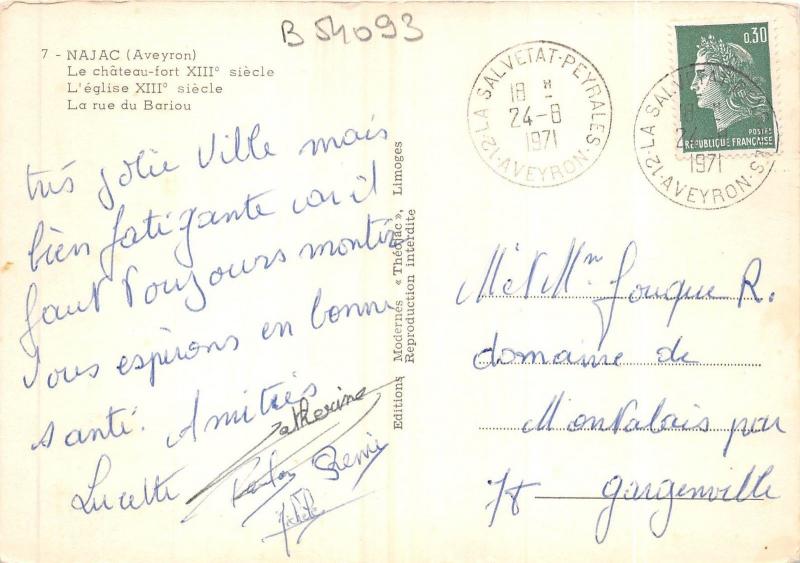 B 54093
7 - NAJAC (Aveyron)
Le château-fort XIIIº siècle
L'église XIIIº siècle
La rue du Bariou
très jolie ville mais
bien fatigante car il
faut toujours monter
Vous espérons en bonne
santé. Amitiés
Lucette
Catherine
Michèle
Editions Modernes « Théojac », Limoges
Reproduction interdite
12 - LA SALVETAT-PEYRALES - AVEYRON
18 H
24-8
1971
0,30
POSTES
REPUBLIQUE FRANÇAISE
12 - LA SALVETAT-PEYRALES - AVEYRON
18 H
24-8
1971
M et Mm Fouque R.
domaine de
Montalais par
78 Gargenville